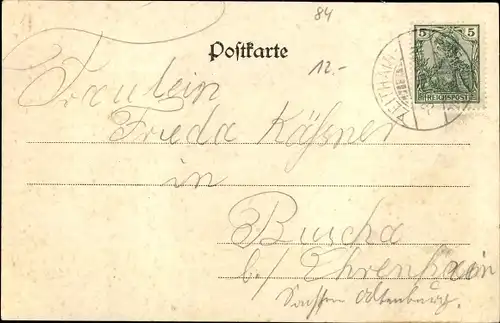 84
Postkarte
12.-
5 5
REICHSPOST
ZEITHAIN
Fräulein
Frieda Käßner
in
Buscha
bei Ehrenhain
Sachsen Altenburg.